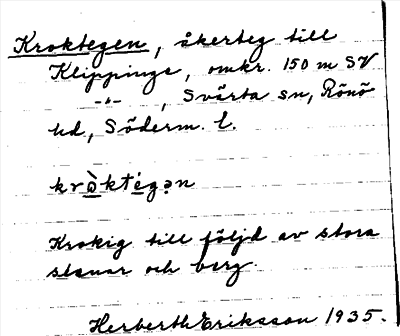 Kroktegen, åkerteg till
Klippinge, omkr. 150 m SV
-"- , Svärta sn, Rönö
hd, Söderm. l.
krò̱ktégən
Krokig till följd av stora
stenar och berg.
Herberth Eriksson 1935.